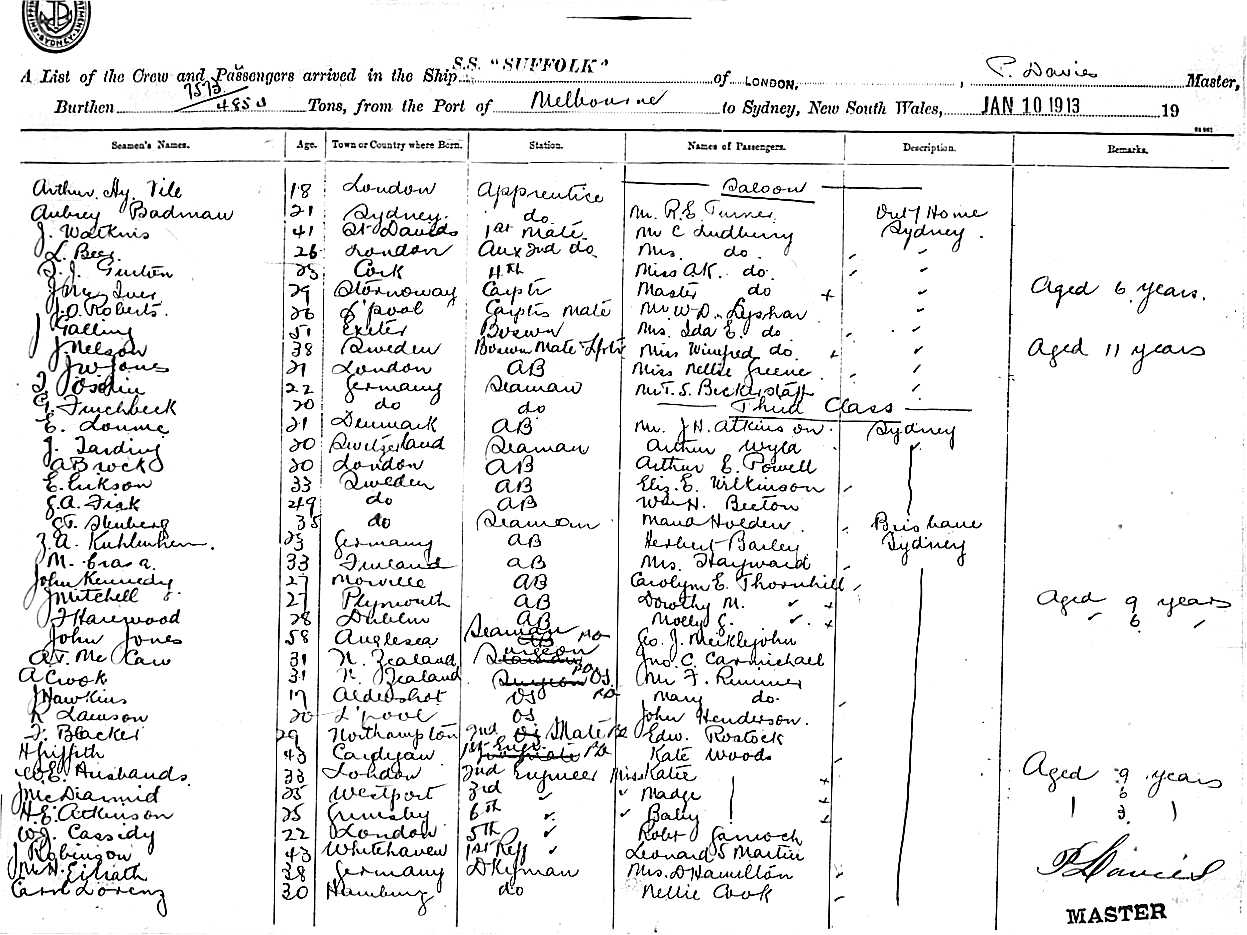 SYDNEY
A List of the Crew and Passengers arrived in the Ship S.S. "SUFFOLK" of LONDON, P. Davies Master,
Burthen 7573 / 4850 Tons, from the Port of Melbourne to Sydney, New South Wales, JAN 10 1913 19
Seamen's Names. Age. Town or Country where Born. Station. Names of Passengers. Description. Remarks.
Arthur Hy. Vile 18 London Apprentice Saloon
Aubrey Badman 21 Sydney. do Mr. R.E. Turner Out / Home
J. Watkins 41 St Davids 1st Mate Mr C Ludberry Sydney.
L. Bees 26 London Aux 2nd do. Mrs. do. "
25 Cork 4th Miss A.K. do. "
29 Stornoway Carptr Master do + " Aged 6 years.
J.O. Roberts. 26 L'pool Carptrs Mate Mr W.D. "
J Talling 51 Exeter Boswn Mrs. Ida E. do "
J. Nelson 38 Sweden Boswn Mate Miss Winifred do. + " Aged 11 years
J W Jones 21 London AB Miss Nellie Greene "
22 Germany Seaman Mr T. S. Bickerstaff "
Finchbeck 20 do do Third Class
E. 21 Denmark AB Mr. J.H. Atkinson Sydney
J. Tarding 20 Switzerland Seaman Arthur Wyld
A Brock 20 London AB Arthur E. Powell
E. Erikson 33 Sweden AB Eliz. E. Wilkinson
G.A. Fisk 49 do AB Wm H. Beeton
Stenberg 35 do Seaman Maud Holden Brisbane
Z. A. 23 Germany AB Herbert Bailey Sydney
M. 33 Finland AB Mrs. Hayward
John Kennedy 27 Morville AB Carolyn E. Thornhill
J Mitchell 27 Plymouth AB Dorothy M. " + Aged 9 years
F Harewood 28 Dublin AB Molly G. " + " 6 "
John Jones 58 Anglesea Seaman Geo. J. Meiklejohn
A.T. Mc Caw 31 N. Zealand Surgeon Jno. C. Carmichael
A Crook 31 N. Zealand OS Mr F. Rimmer
J Hawkins 17 Aldershot OS Mary do.
R Lawson 20 L'pool OS John Henderson.
F. Blacker 29 Northampton 2nd Mate Edw. Rostock
H Griffith 43 Cardigan 1st Engr. Kate Woods
W.E. Husbands 33 London 2nd Engineer Miss Katie + Aged 9 years
J McDiarmid 25 Westport 3rd " " Madge + 6
H.E. Atkinson 25 Grimsby 6th " " Baby + 3
W.J. Cassidy 22 London 5th " Robt Garroch
J Robinson 43 Whitehaven 1st Refr " Leonard S Martin
38 Germany Dkyman Mrs. D Hamilton P Davies
Carl Lorenz 30 Hamburg do Nellie Cook
MASTER